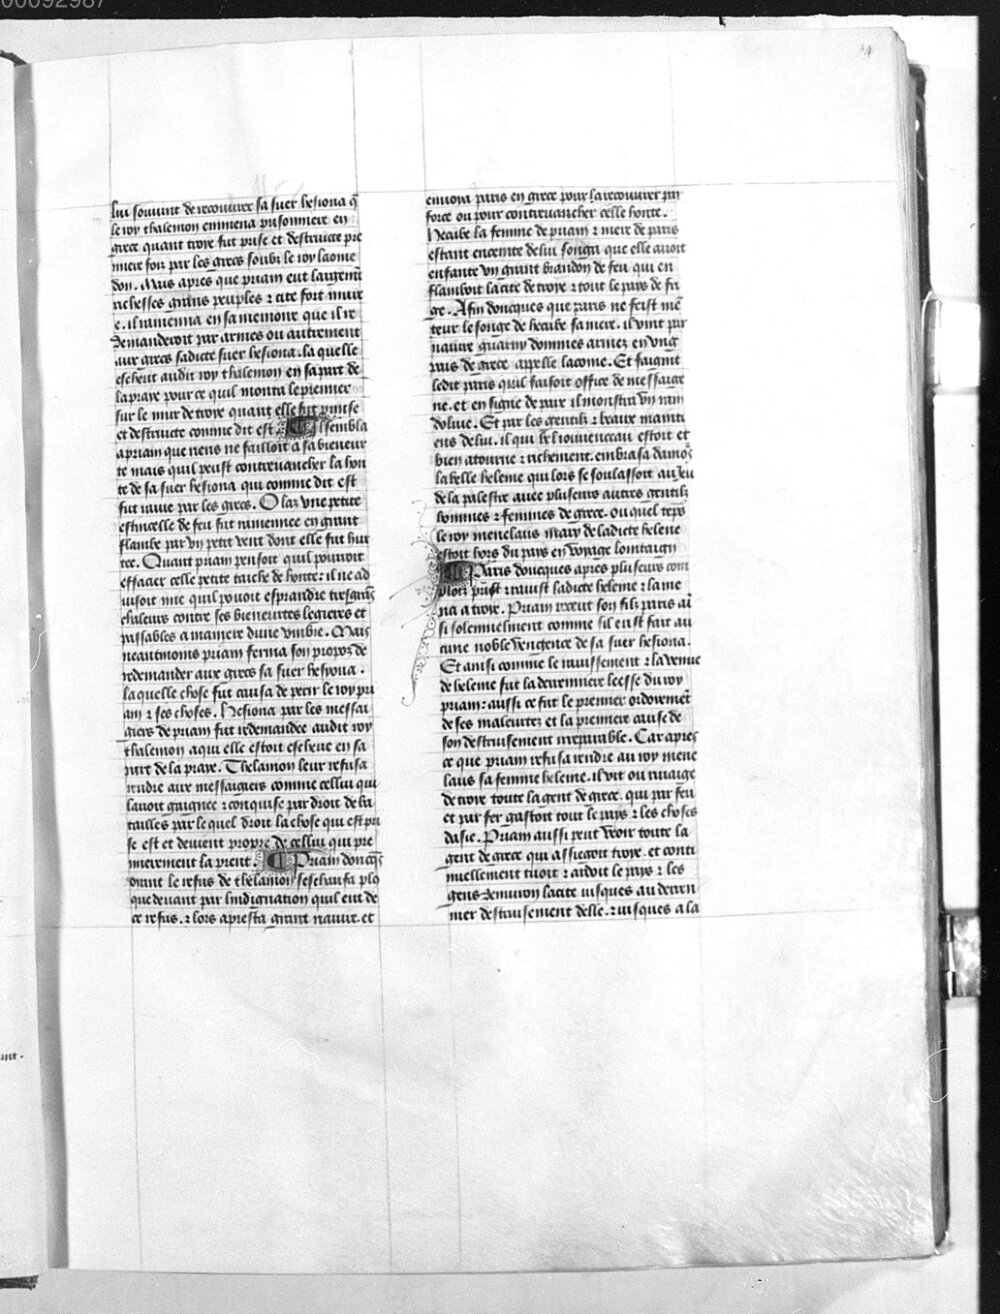 00092987
34
lui souvint de recouvrer sa suer hesiona q̄
le roy thalemon emmena prisonniere en
grece quant troye fut prise et destruicte pre
miere foiz par les grecs soubz le roy laome
don. Mais apres que priam eut largem̄t
richesses grans peuples ⁊ cite fort mure
e. il ramenna en sa memoire que il re
demanderoit par armes ou autrement
aux grecs sadicte suer hesiona. la quelle
escheut audit roy thalemon en sa part de
la praye pource quil monta le premier
sur le mur de troye quant elle fut prinse
et destruicte comme dit est. Il sembla
a priam que riens ne failloit a sa bieneur
te mais quil peust contrevancher la hon
te de sa suer hesiona qui comme dit est
fut ravie par les grecs. O las une petite
estincelle de feu fut ramenee en grant
flambe par un petit vent dont elle fut hur
tee. Quant priam pensoit quil pouvoit
effacier celle petite taiche de honte: il ne ad
visoit mie quil povoit esprandre tresgrās
chaleurs contre ses bieneurtes legieres et
passables a maniere dune umbre. Mais
neantmoins priam ferma son propoz de
redemander aux grecs sa suer hesyona.
la quelle chose fut causa de perir le roy pri
am ⁊ ses choses. Hesiona par les messai
giers de priam fut redemandee audit roy
thalemon a qui elle estoit escheue en sa
part de la praye. Thelamon leur refusa
rendre aux messaigiers comme cellui qui
lavoit gaignee ⁊ conquise par droit de ba
tailles par le quel droit la chose qui est pri
se est et devient propre de cellui qui pre
mierement la prent. Priam doncq̄s
oiant le refus de thelamon seschaufa plꝯ
que devant par lindignation quil eut de
ce refus. ⁊ lors apresta grant navire. et
envoia paris en grece pour la recouvrer par
force ou pour contrevancher celle honte.
Hecube la femme de priam ⁊ mere de paris
estant enceinte de lui songa que elle avoit
enfante un grant brandon de feu qui en
flamboit la cite de troye ⁊ tout le pays de fri
ge. Afin doncques que paris ne feist mē
teur le songe de hecube sa mere. il vint par
navire guarny dommes armez en ung
pais de grece appelle lacome. Et faignit
ledit paris quil faisoit office de messaige
rie. et en signe de paix il monstra un ram
dolive. Et par les gentilz ⁊ beaux mainti
ens de lui. il qui bel iouvenceau estoit et
bien atourne ⁊ richement. embrasa damo᷑s
la belle heleine qui lors se soulassoit au jeu
de la palestre avec plusieurs autres gentilz
hommes ⁊ femmes de grece. ou quel tēps
le roy menelaus mary de ladicte helene
estoit hors du pays en voyage lointaign
Paris doncques apres plusieurs com
plotz prist ⁊ ravist ladicte heleine ⁊ lame
na a troye. Priam receut son filz paris ai
si solemnelment comme sil eust fait au
cune noble vengence de sa suer hesiona.
Et ainsi comme le ravissement ⁊ la venue
de heleine fut la derrenniere leesse du roy
priam: aussi ce fut le premier ordonnemēt
de ses maleurtez et la premiere cause de
son destruisement irreparable. Car apres
ce que priam refusa rendre au roy mene
laus sa femme heleine. il vit ou rivaige
de troye toute la gent de grece. qui par feu
et par fer gastoit tout le pays ⁊ les choses
dasie. Priam aussi peut veoir toute la
gent de grece qui assiegoit troye. et conti
nuellement tuoit ⁊ ardoit le pays ⁊ les
gens denviron la cite iusques au derren
nier destruisement delle. ⁊ iusques a la